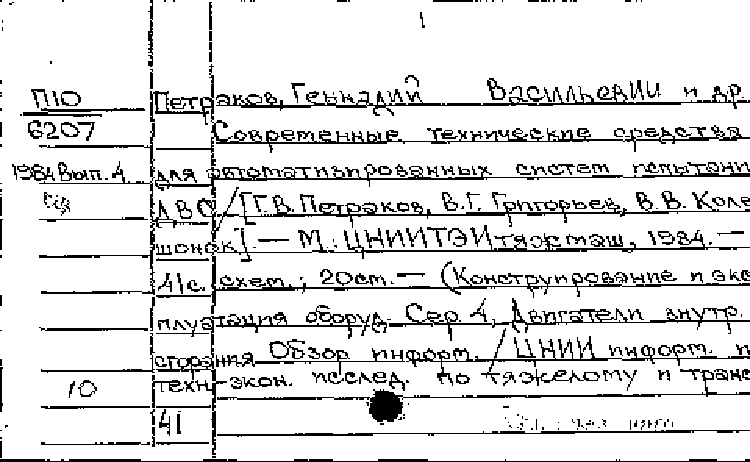 П10 Петраков, Геннадий Васильевич и др
6207 Современные технические средства
1984 Вып. 4 для автоматизированных систем испытани
ДВС / [Г.В. Петраков, В.Г. Григорьев, В.В. Коле
шонок]. — М.: ЦНИИТЭИтяжмаш, 1984. —
41с. схем.; 20см. — (Конструирование и экс
плуатация оборуд. Сер. 4, Двигатели внутр.
сгорания Обзор информ. / ЦНИИ информ. и
10 техн-экон. исслед. по тяжелому и транс
41